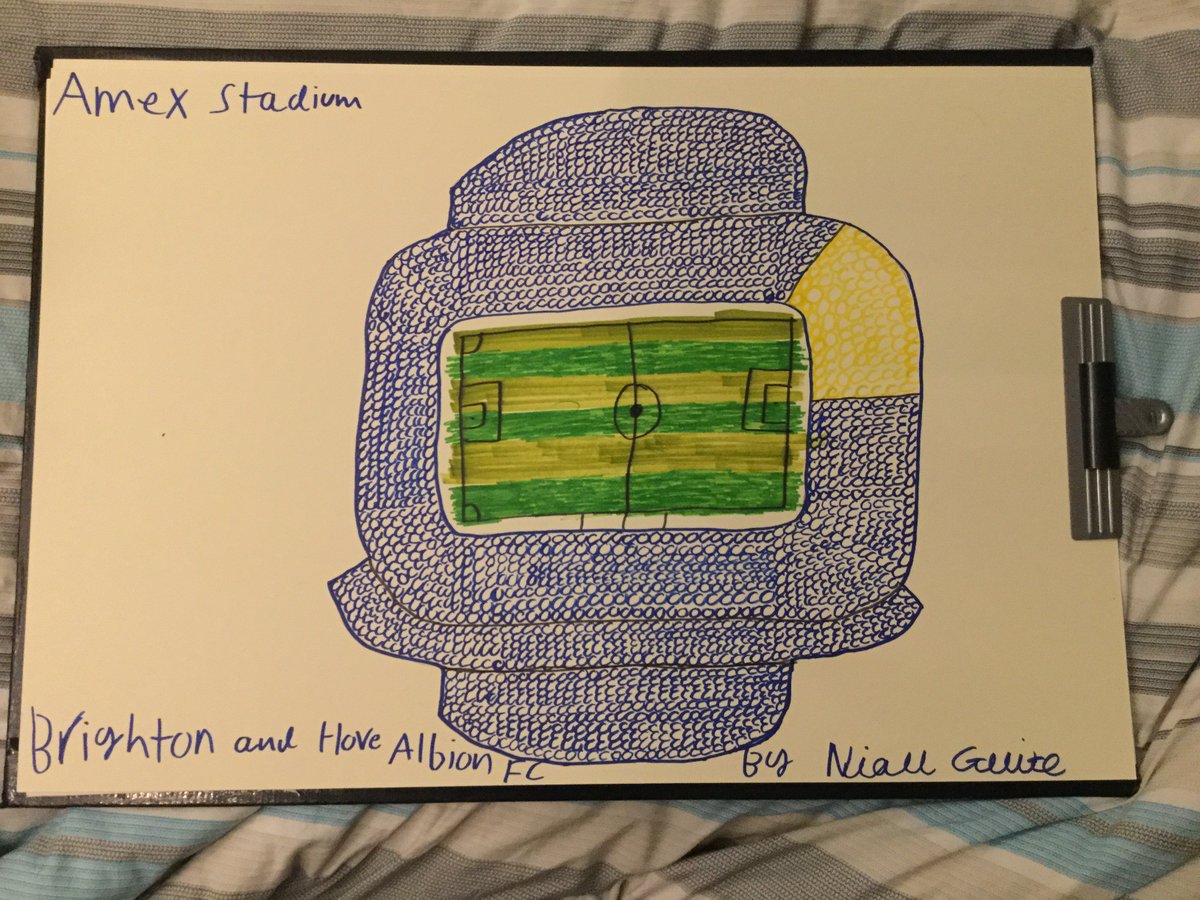 Amex Stadium
Brighton and Hove Albion FC
By Niall Guite